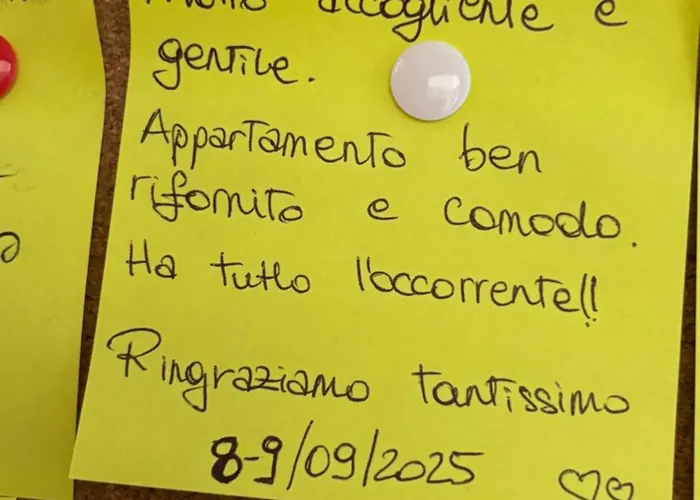 molto accogliente e
gentile.
Appartamento ben
rifornito e comodo.
Ha tutto l'occorrente!!
Ringraziamo tantissimo
8-9/09/2025 ♡♡